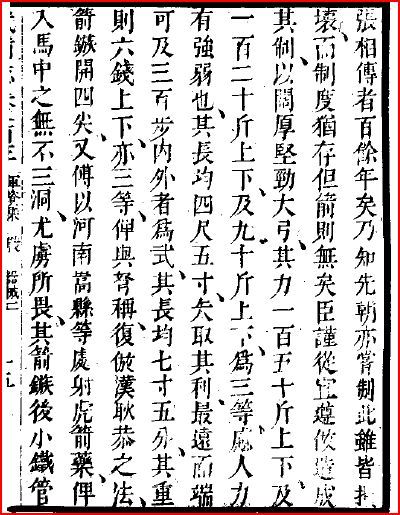 張相傳者百餘年矣乃知先朝亦嘗制此雖皆
壞而制度猶存但箭則無矣臣謹從宜遵倣造成
其制以闊厚堅勁大弓其力一百五十斤上下及
一百二十斤上下及九十斤上下為三等處人力
有強弱也其長均四尺五寸矢取其利最遠而端
可及三百步內外者為式其長均七寸五分其重
則六錢上下亦三等俾與弩稱復倣漢耿恭之法
箭鏃開四尖又傅以河南嵩縣等處射虎箭藥俾
入馬中之無不三洞尤虜所畏其箭鏃後小鐵管